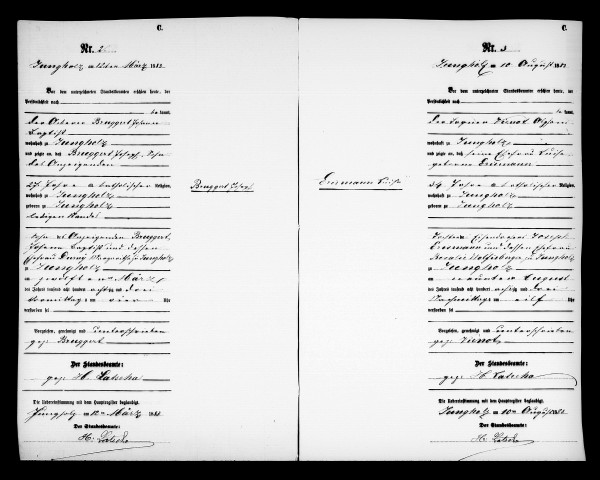 C.
Nr. 2
Jungholz am 12ten März 1883
Vor dem unterzeichneten Standesbeamten erschien heute, der
Persönlichkeit nach
be kannt,
der Bruggert Johann
Baptist
wohnhaft zu Jungholz
und zeigte an, daß Bruggert Joseph, Sohn
des Anzeigenden
27 Jahre alt katholischer Religion,
wohnhaft zu Jungholz
geboren zu Jungholz
ledigen Standes
Sohn des Anzeigenden Bruggert
Johann Baptist und dessen
Ehefrau
zu Jungholz
am März
des Jahres tausend acht hundert achtzig und drei
Vormittags um vier Uhr
verstorben sei
Vorgelesen, genehmigt und unterschrieben
gez. Bruggert
Der Standesbeamte:
gez. H. Latscha
Die Uebereinstimmung mit dem Hauptregister beglaubigt.
Jungholz am 12ten März 1883
Der Standesbeamte:
H. Latscha
Bruggert Josef
C.
Nr. 3
Jungholz am 10 August 1883
Vor dem unterzeichneten Standesbeamten erschien heute, der
Persönlichkeit nach
be kannt,
der Tagner Vienot
wohnhaft zu Jungholz
und zeigte an, daß seine Ehefrau Luise
geborene Ermann
34 Jahre alt katholischer Religion,
wohnhaft zu Jungholz
geboren zu Jungholz
Tochter
und dessen Ehefrau
Rosalie zu Jungholz
zu Jungholz
am neunten August
des Jahres tausend acht hundert achtzig und drei
Nachmittags um elf Uhr
verstorben sei
Vorgelesen, genehmigt und unterschrieben
gez. Vienot
Der Standesbeamte:
gez. H. Latscha
Die Uebereinstimmung mit dem Hauptregister beglaubigt.
Jungholz am 10ten August 1883
Der Standesbeamte:
H. Latscha
Luise